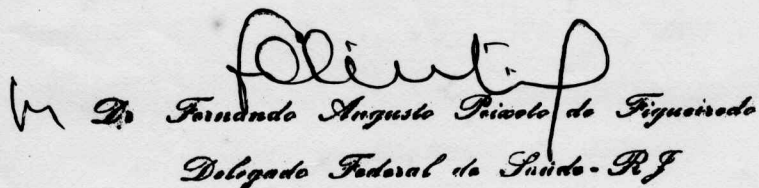 Dr Fernando Augusto Peixoto de Figueiredo
Delegado Federal de Saúde-RJ